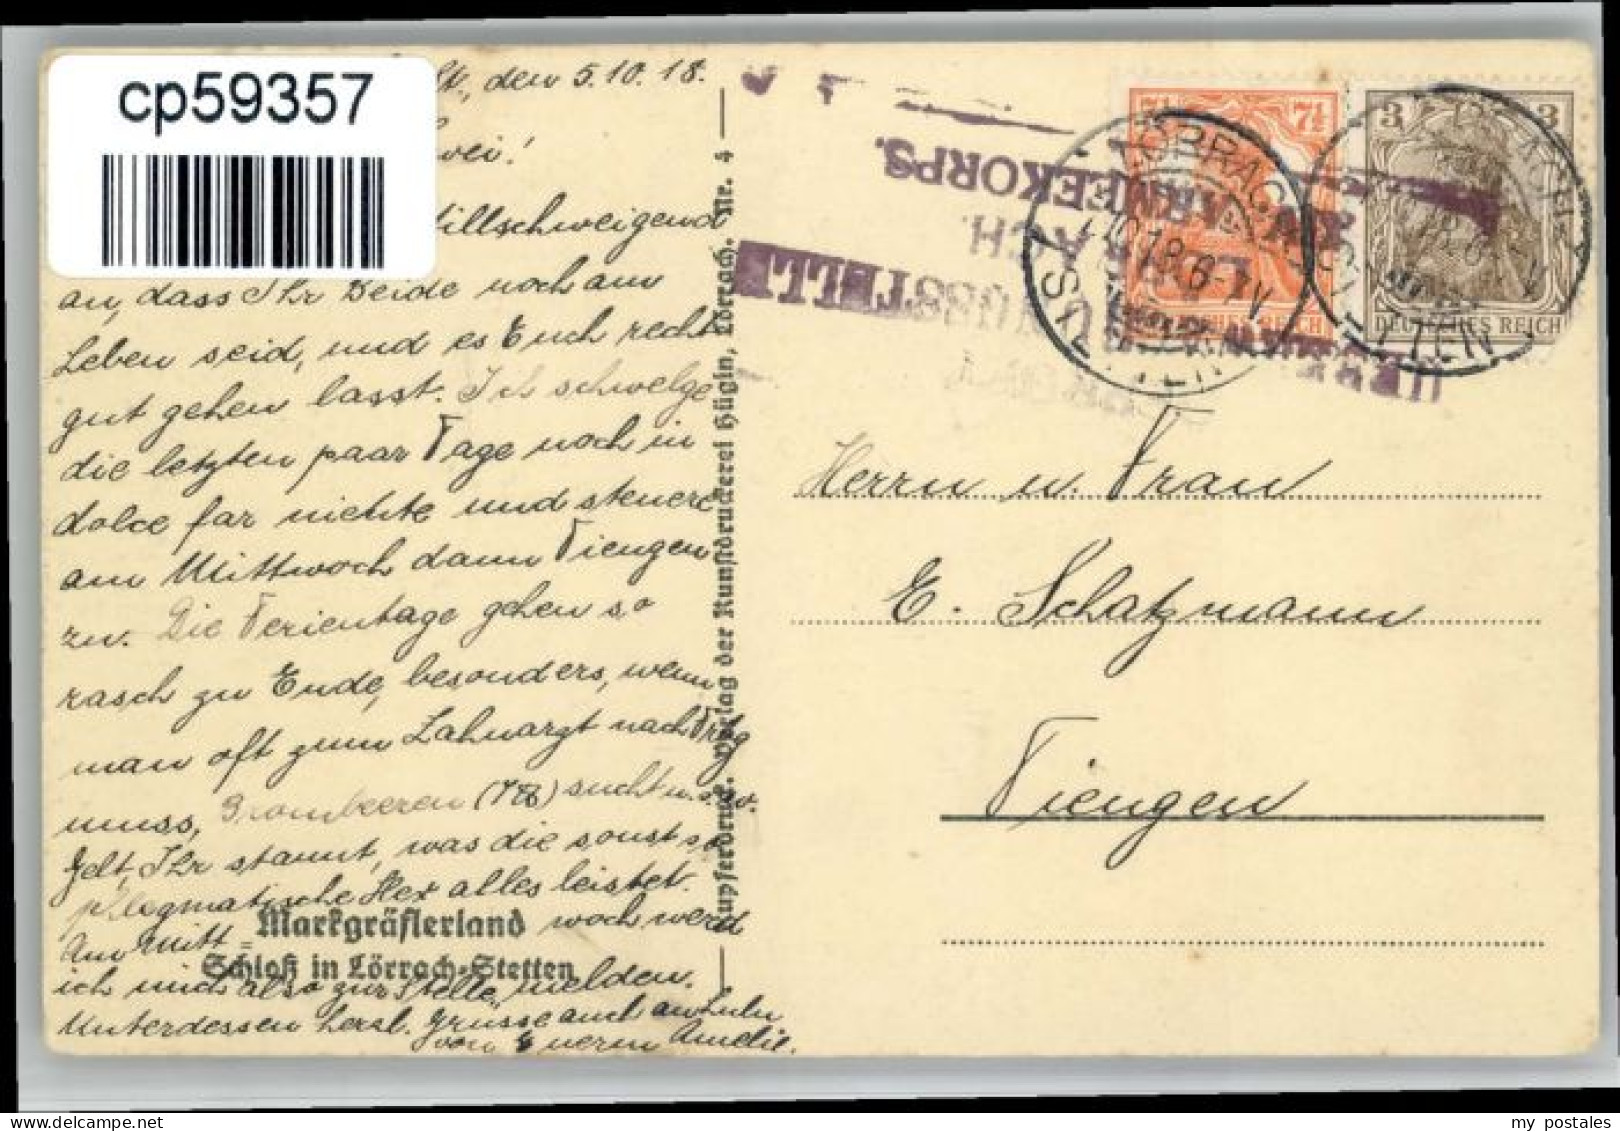 cp59357
den 5.10.18.
wei!
stillschweigend
an, dass Ihr Beide noch am
Leben seid, und es Euch recht
gut gehen lasst. Ich schwelge
die letzten paar Tage noch in
dolce far niente und steuere
am Mittwoch dann Tiengen
zu. Die Ferientage gehen so
rasch zu Ende, besonders, wenn
man oft zum Zahnarzt nach Frbg
muss, Brombeeren sucht u.s.w.
Gelt, Ihr staunt, was die sonst so
phlegmatische Hex alles leistet.
Am Mitt= woch werd
ich mich also zur Stelle melden.
Unterdessen herzl. Grüsse auch an Lulu
von Euerm Amelie.
Markgräflerland
Schloß in Lörrach-Stetten
Kupferdruck. Verlag der Kunstdruckerei Hügin, Lörrach. Nr. 4
ARMEEKORPS.
LÖRRACH
STETTEN
7½
DEUTSCHES REICH
3 3
DEUTSCHES REICH
Herrn u. Frau
E. Schatzmann
Tiengen
my postales